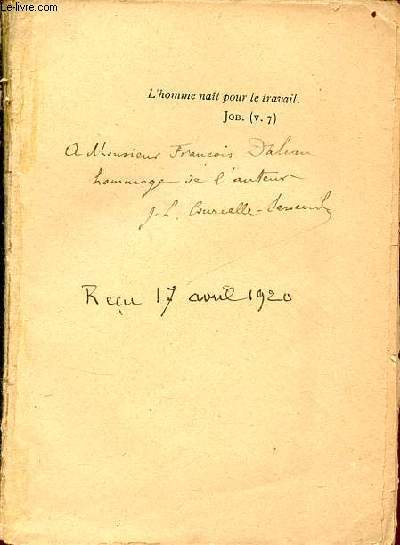 Le-livre.com
L'homme naît pour le travail.
JOB. (V. 7)
A Monsieur François Daleau
hommage de l'auteur
J.-L. Courcelle-Seneuil
Reçu 17 avril 1920